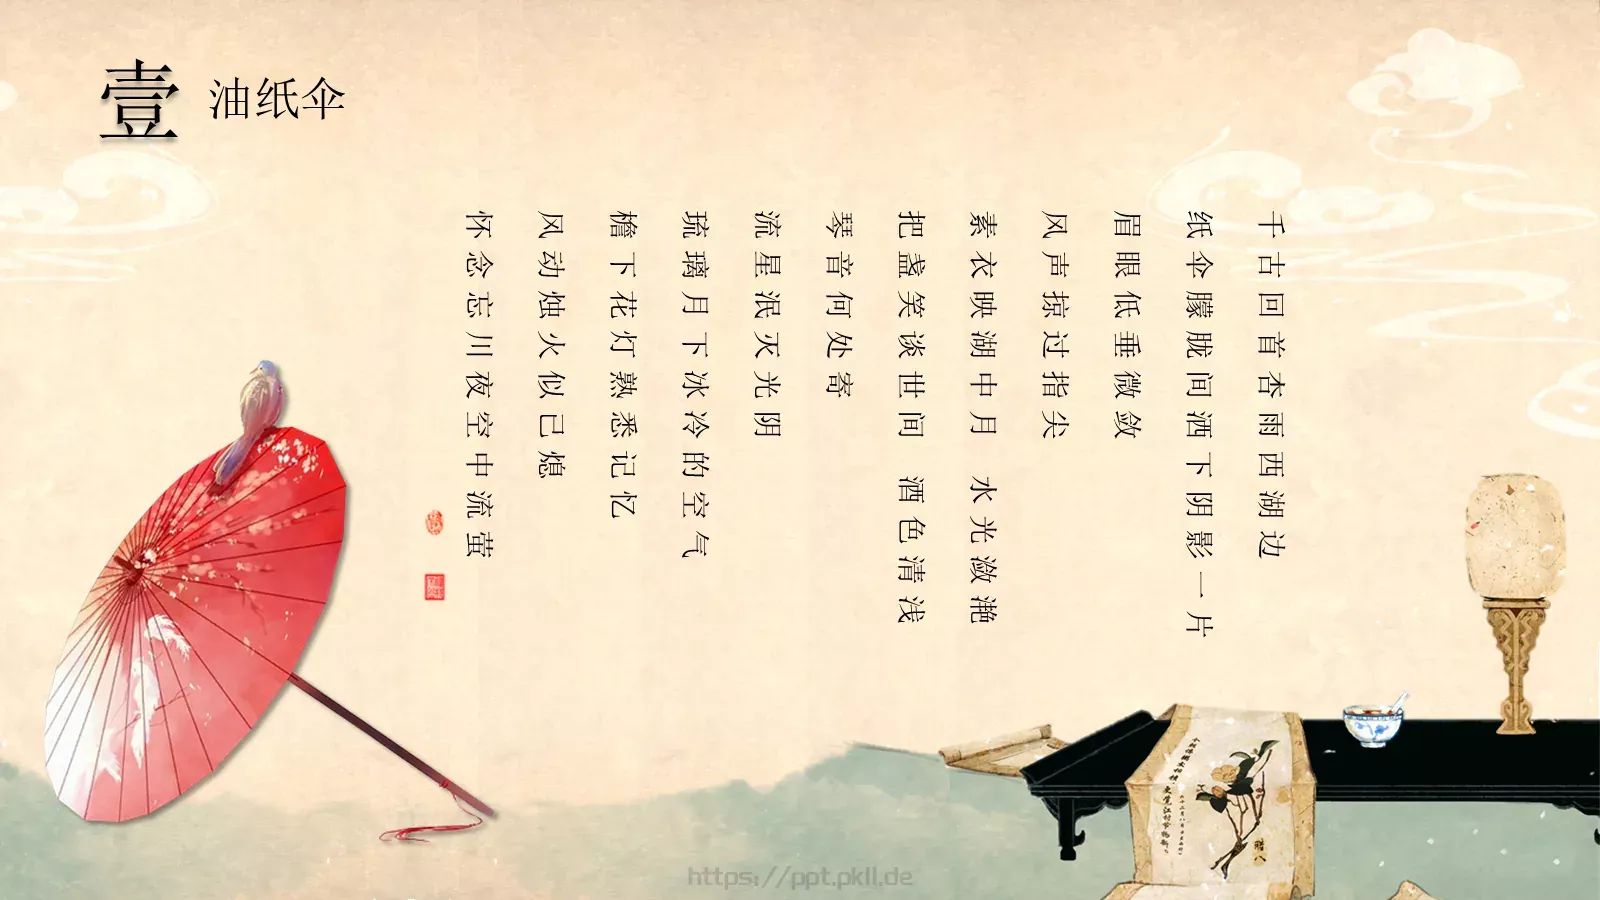 壹 油纸伞
千古回首杏雨西湖边
纸伞朦胧间洒下阴影一片
眉眼低垂微敛
风声掠过指尖
素衣映湖中月 水光潋滟
把盏笑谈世间 酒色清浅
琴音何处寄
流星泯灭光阴
琉璃月下冰冷的空气
檐下花灯熟悉记忆
风动烛火似已熄
怀念忘川夜空中流萤
腊八
https://ppt.pkll.de